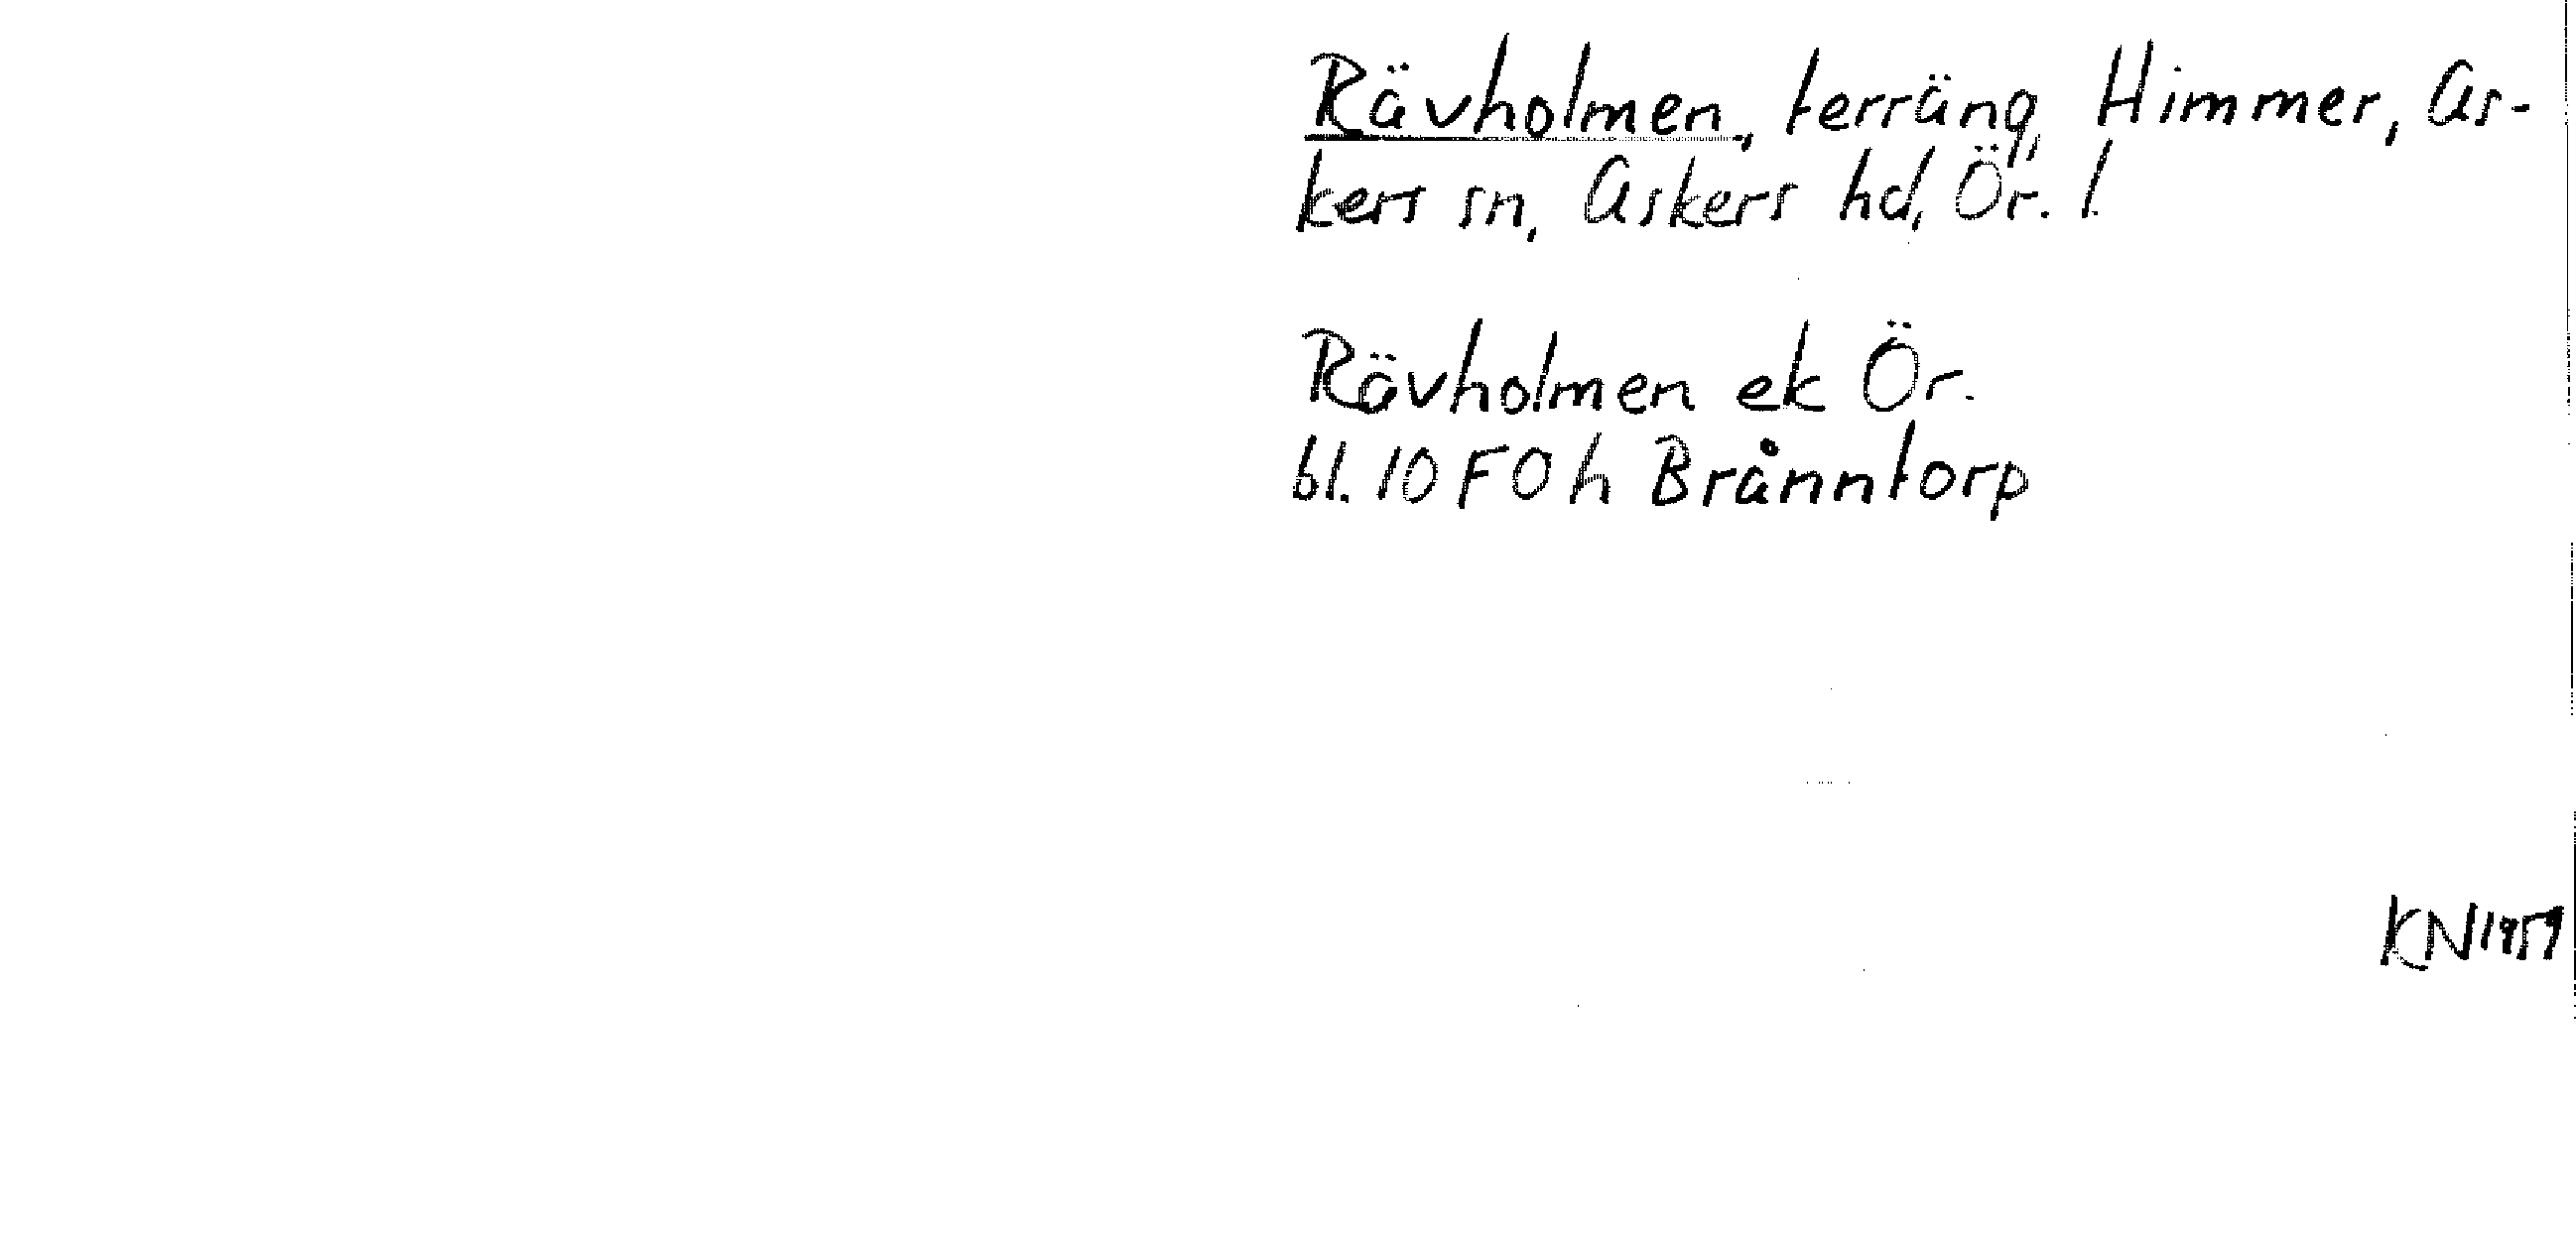 Rävholmen, terräng, Himmer, As-
kers sn, Askers hd, Ör. l.
Rävholmen ek Ör.
bl. 10 F 0 h Brånntorp
KN 1959